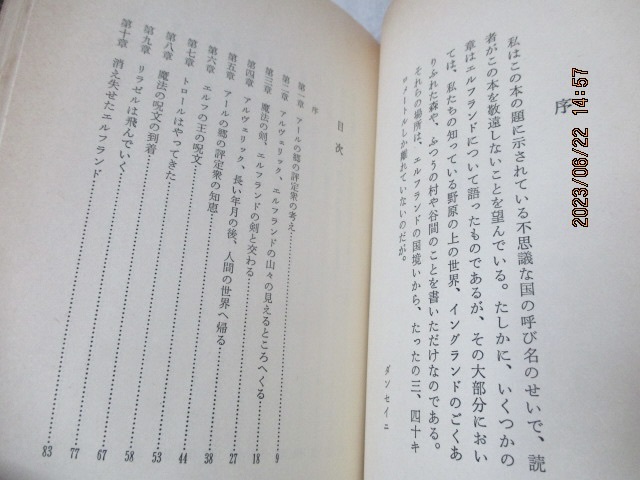 序
私はこの本の題に示されている不思議な国の呼び名のせいで、読
者がこの本を敬遠しないことを望んでいる。たしかに、いくつかの
章はエルフランドについて語ったものであるが、その大部分におい
ては、私たちの知っている野原の上の世界、イングランドのごくあ
りふれた森や、ふつうの村や谷間のことを書いただけなのである。
それらの場所は、エルフランドの国境いから、たったの三、四十キ
ロメートルしか離れていないのだが。
ダンセイニ
目次
序
第一章 アールの郷の評定衆の考え 9
第二章 アルヴェリック、エルフランドの山々の見えるところへくる 18
第三章 魔法の剣、エルフランドの剣と交わる 27
第四章 アルヴェリック、長い年月の後、人間の世界へ帰る 38
第五章 アールの郷の評定衆の知恵 44
第六章 エルフの王の呪文 53
第七章 トロールはやってきた 58
第八章 魔法の呪文の到着 67
第九章 リラゼルは飛んでいく 77
第十章 消え失せたエルフランド 83
2023/06/22 14:57